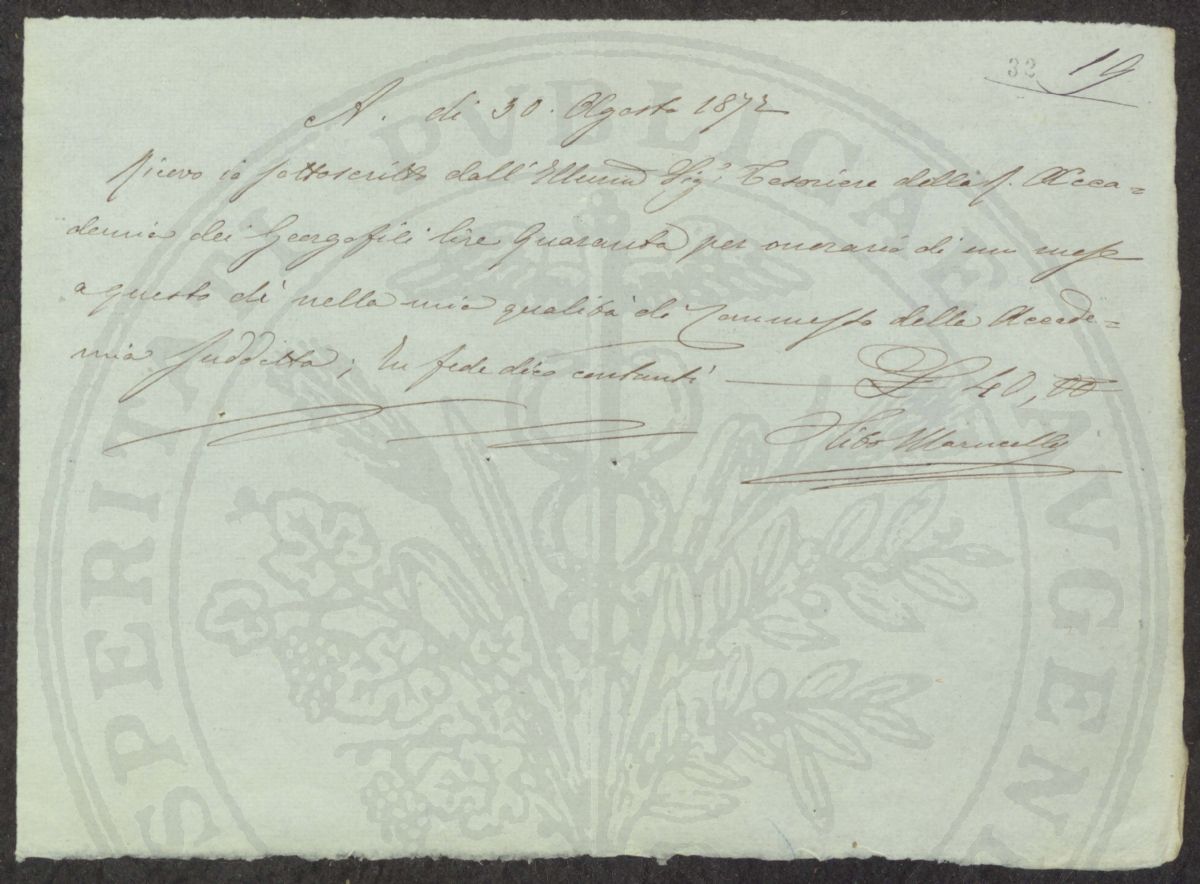 32 19
A. di 30. Agosto 1872
Ricevo io sottoscritto dall' Illumo Sigr. Tesoriere della R. Acca=
demia dei Georgofili lire Quaranta per onorario di un mese
a questo dì nella mia qualità di Commesso della Accade=
mia suddetta; In fede dico contanti — £ 40,00
Marucelli
PUBLICAE
SPERITATI
AVGEN